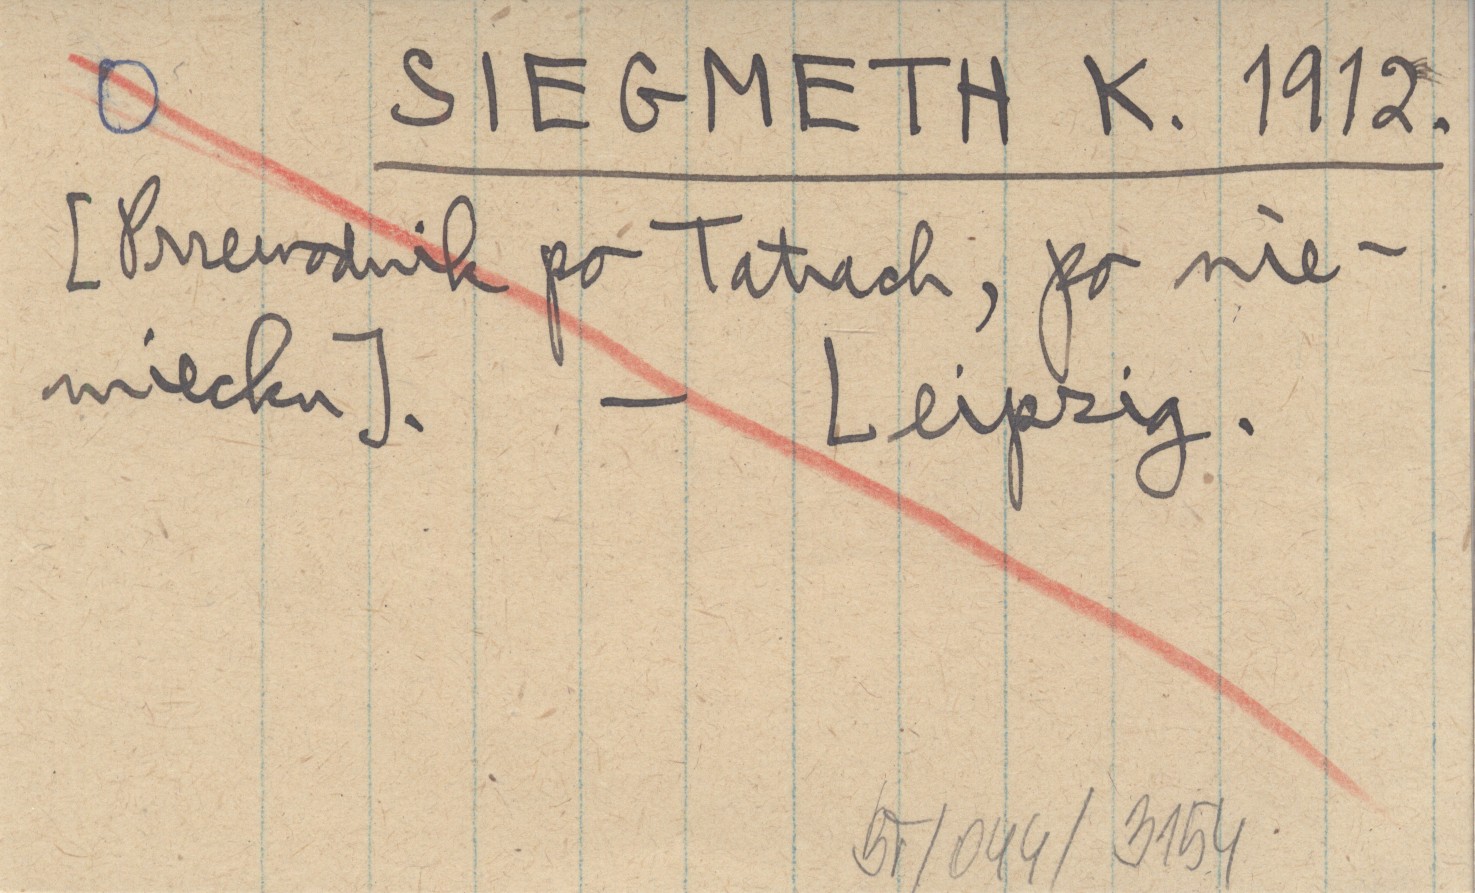 O SIEGMETH K. 1912.
[Przewodnik po Tatrach, po nie-
miecku]. - Leipzig.
ST/044/3154